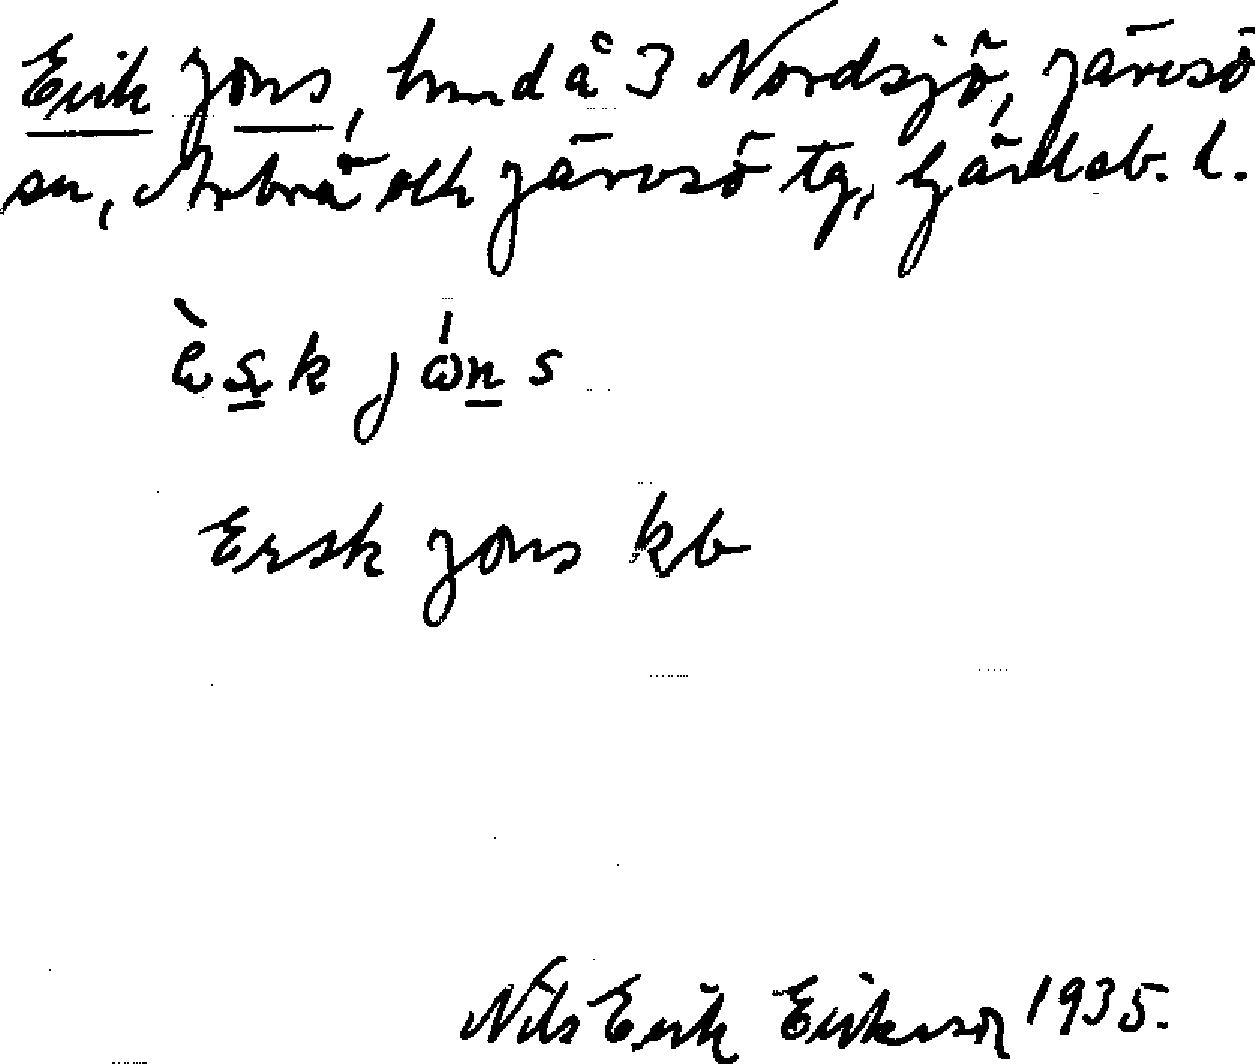 Erik Jons, hmnd å 3 Nordsjö, Järvsö
sn, Arbrå och Järvsö tg, Gävleb. l.
Ersk Jons kb
Nils Erik Eriksson 1935.